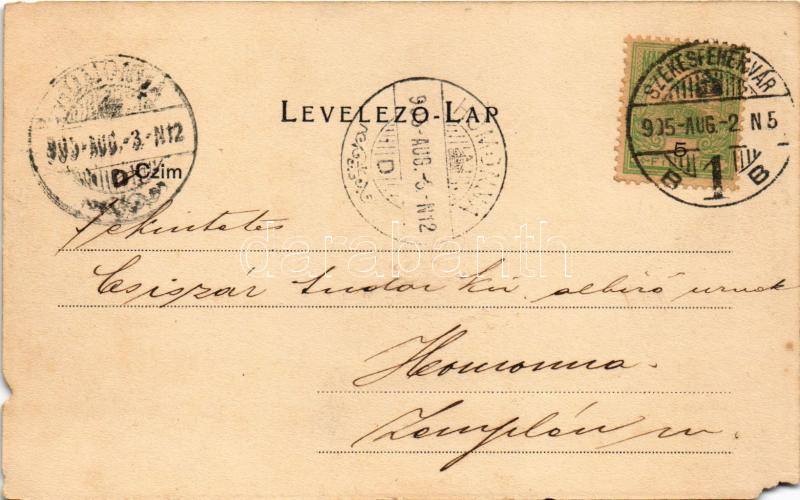 LEVELEZŐ-LAP
SZÉKESFEHÉRVÁR
905-AUG.-2. N5
B 1 B
5
HOMONNA
905-AUG.-3.-N12
D
HOMONNA
905-AUG.-3.-N12
D
Czim
Tekintetes
Csiszár Sándor kir. albíró urnak
Homonna.
Zemplén m.
darabanth